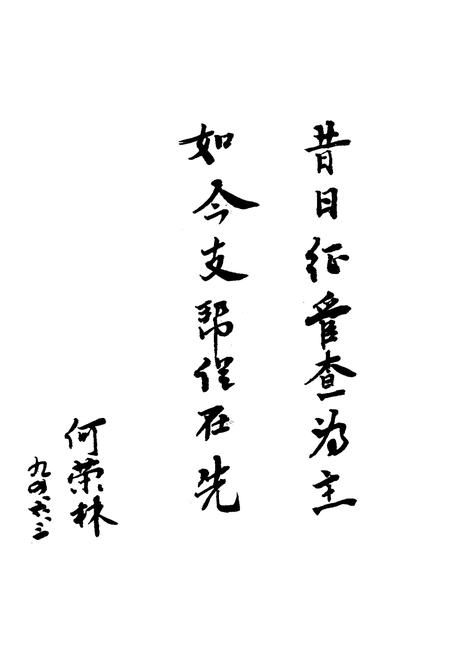 昔日征管查为主
如今支帮促在先
何荣林
九四、六、三